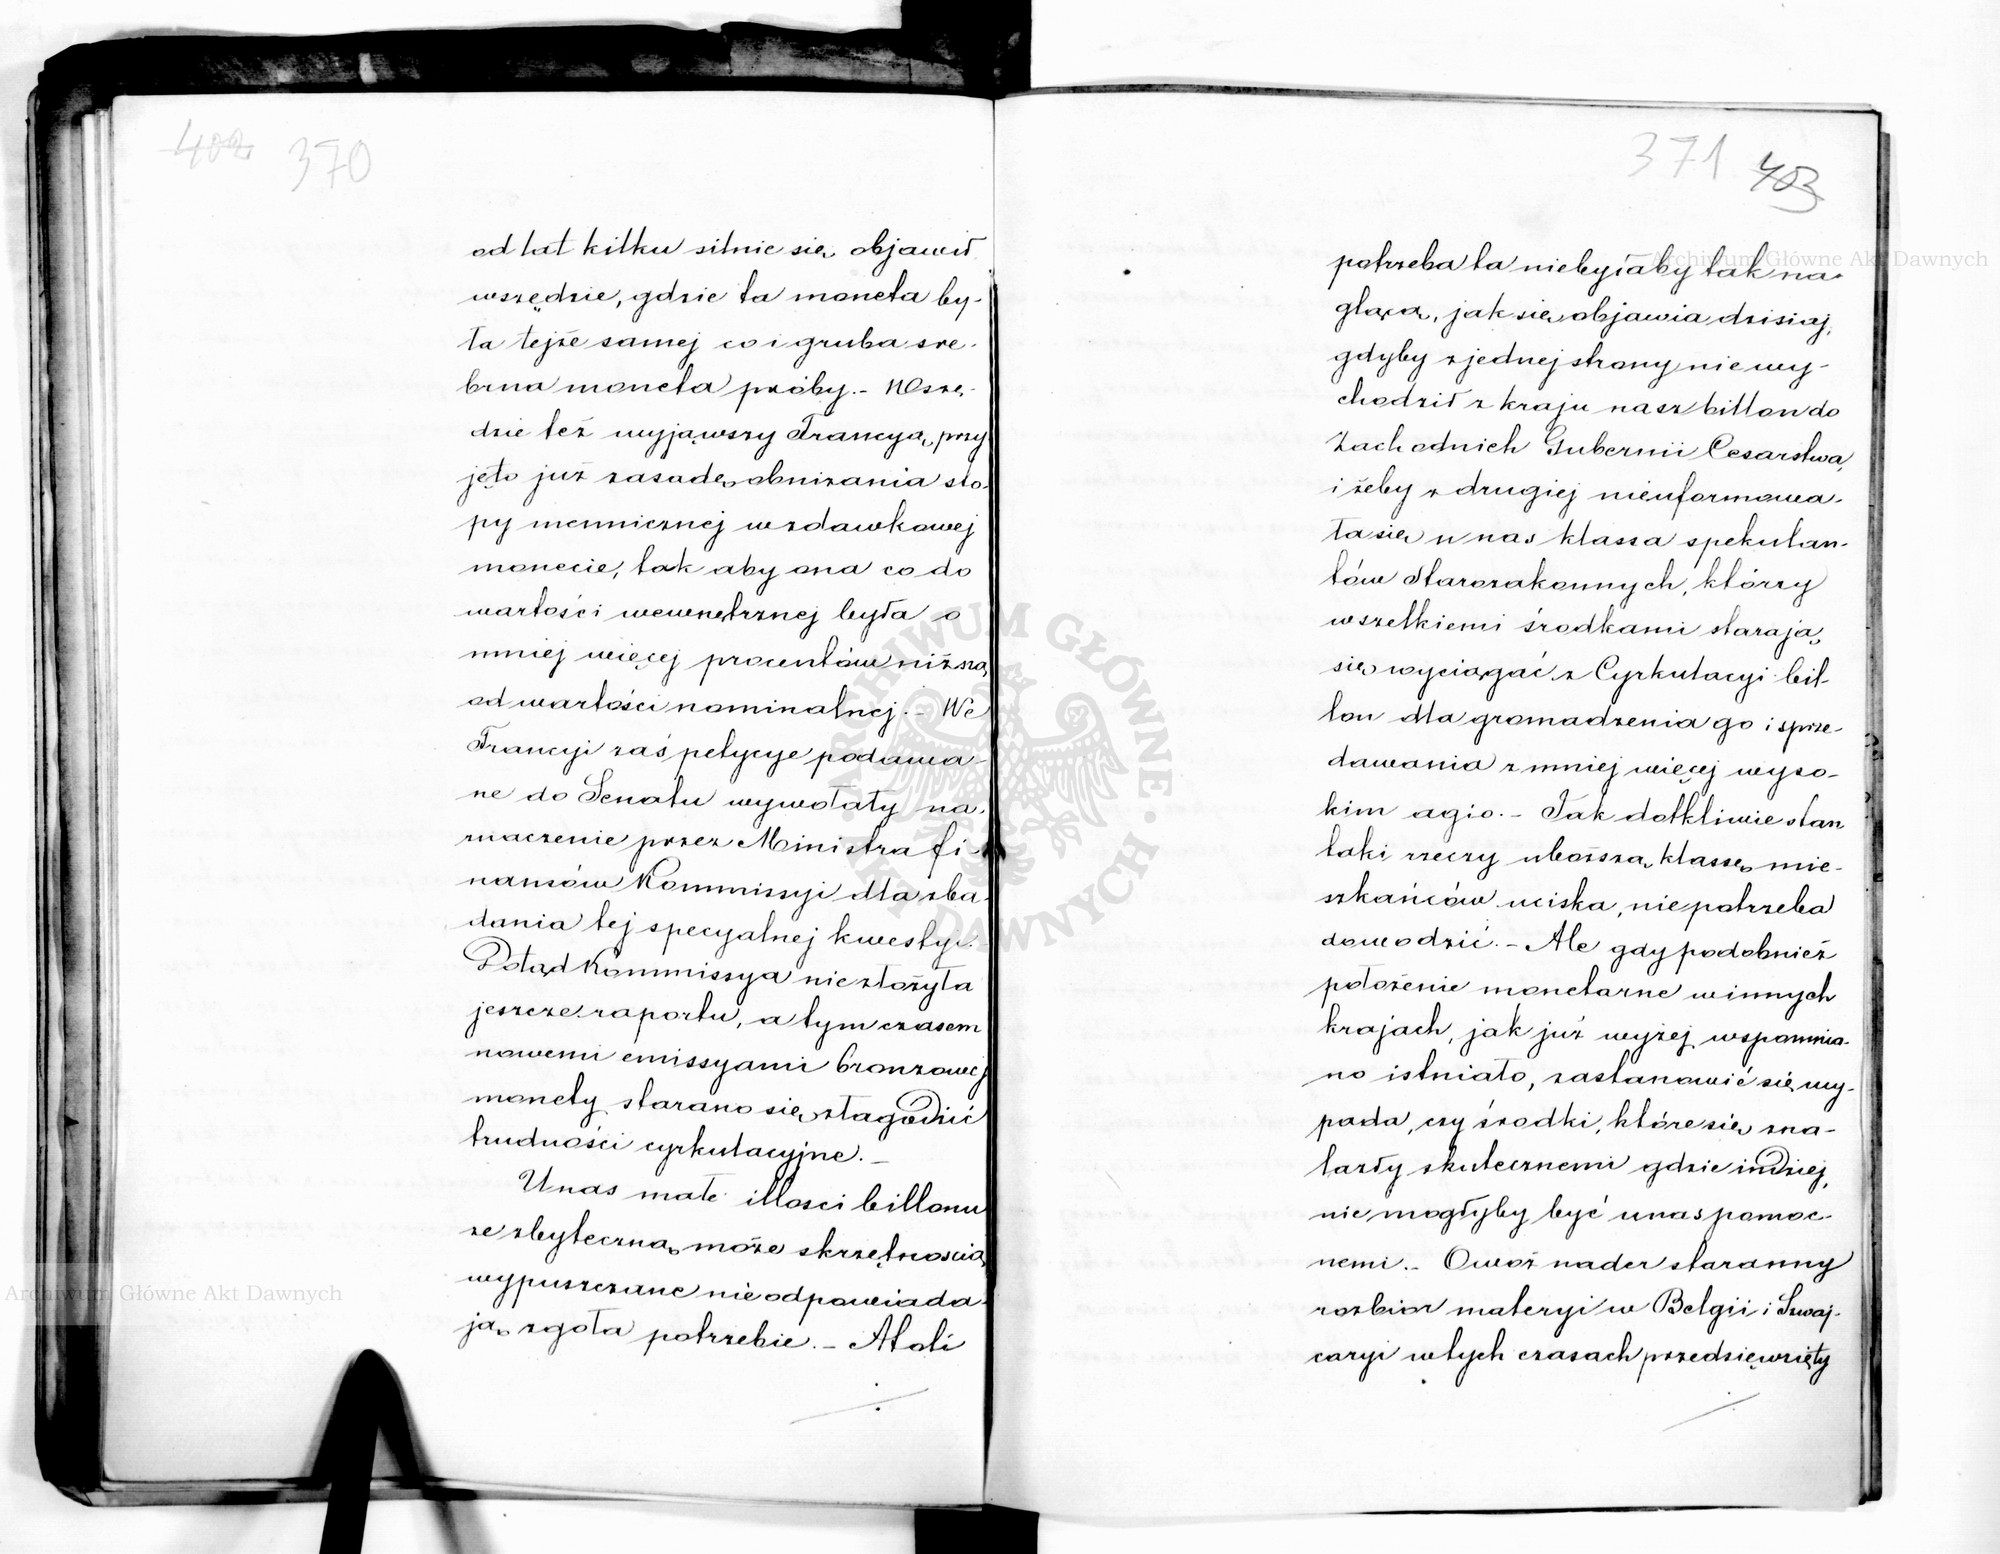 402 370
od lat kilku silnie się objawił
wszędzie, gdzie ta moneta by-
ła tejże samej co i gruba sre-
brna moneta próby. – Wszę-
dzie też wyjąwszy Francyą, przy
jęto już zasadę obniżania sto-
py menniczej w zdawkowej
monecie, tak aby ona co do
wartości wewnętrznej była o
mniej więcej procentów niższą
od wartości nominalnej. – We
Francyi zaś petycye podawa-
ne do Senatu wywołały na-
znaczenie przez Ministra fi-
nansów Kommissyi dla zba-
dania tej specyalnej kwestyi.
Dotąd Kommissya nie złożyła
jeszcze raportu, a tym czasem
nowemi emissyami bronzowej
monety starano się złagodzić
trudności cyrkulacyjne. –
U nas małe illości billonu
ze zbyteczną może skrzętnością
wypuszczane nie odpowiada-
ją zgoła potrzebie. – Atoli
371 403
potrzeba ta niebyłaby tak na-
glącą, jak się objawia dzisiaj,
gdyby z jednej strony nie wy-
chodził z kraju nasz billon do
Zachodnich Gubernii Cesarstwa,
i żeby z drugiej nieuformowa-
ła się u nas klassa spekulan-
tów Starozakonnych, którzy
wszelkiemi środkami starają
się wyciągać z Cyrkulacyi bil-
lon dla gromadzenia go i sprze-
dawania z mniej więcej wyso-
kim agio. – Jak dotkliwie stan
taki rzeczy uboższą klassę mie-
szkańców uciska, nie potrzeba
dowodzić. – Ale gdy podobnież
położenie monetarne w innych
krajach, jak już wyżej wspomnia-
no istniało, zastanowić się wy-
pada, czy środki, które się zna-
lazły skutecznemi gdzie indziej,
nie mogłyby być u nas pomoc-
nemi. – Owoż nader staranny
rozbiór materyi w Belgii i Szwaj-
caryi w tych czasach przedsięwzięty
Archiwum Główne Akt Dawnych
Archiwum Główne Akt Dawnych
ARCHIWUM GŁÓWNE AKT DAWNYCH